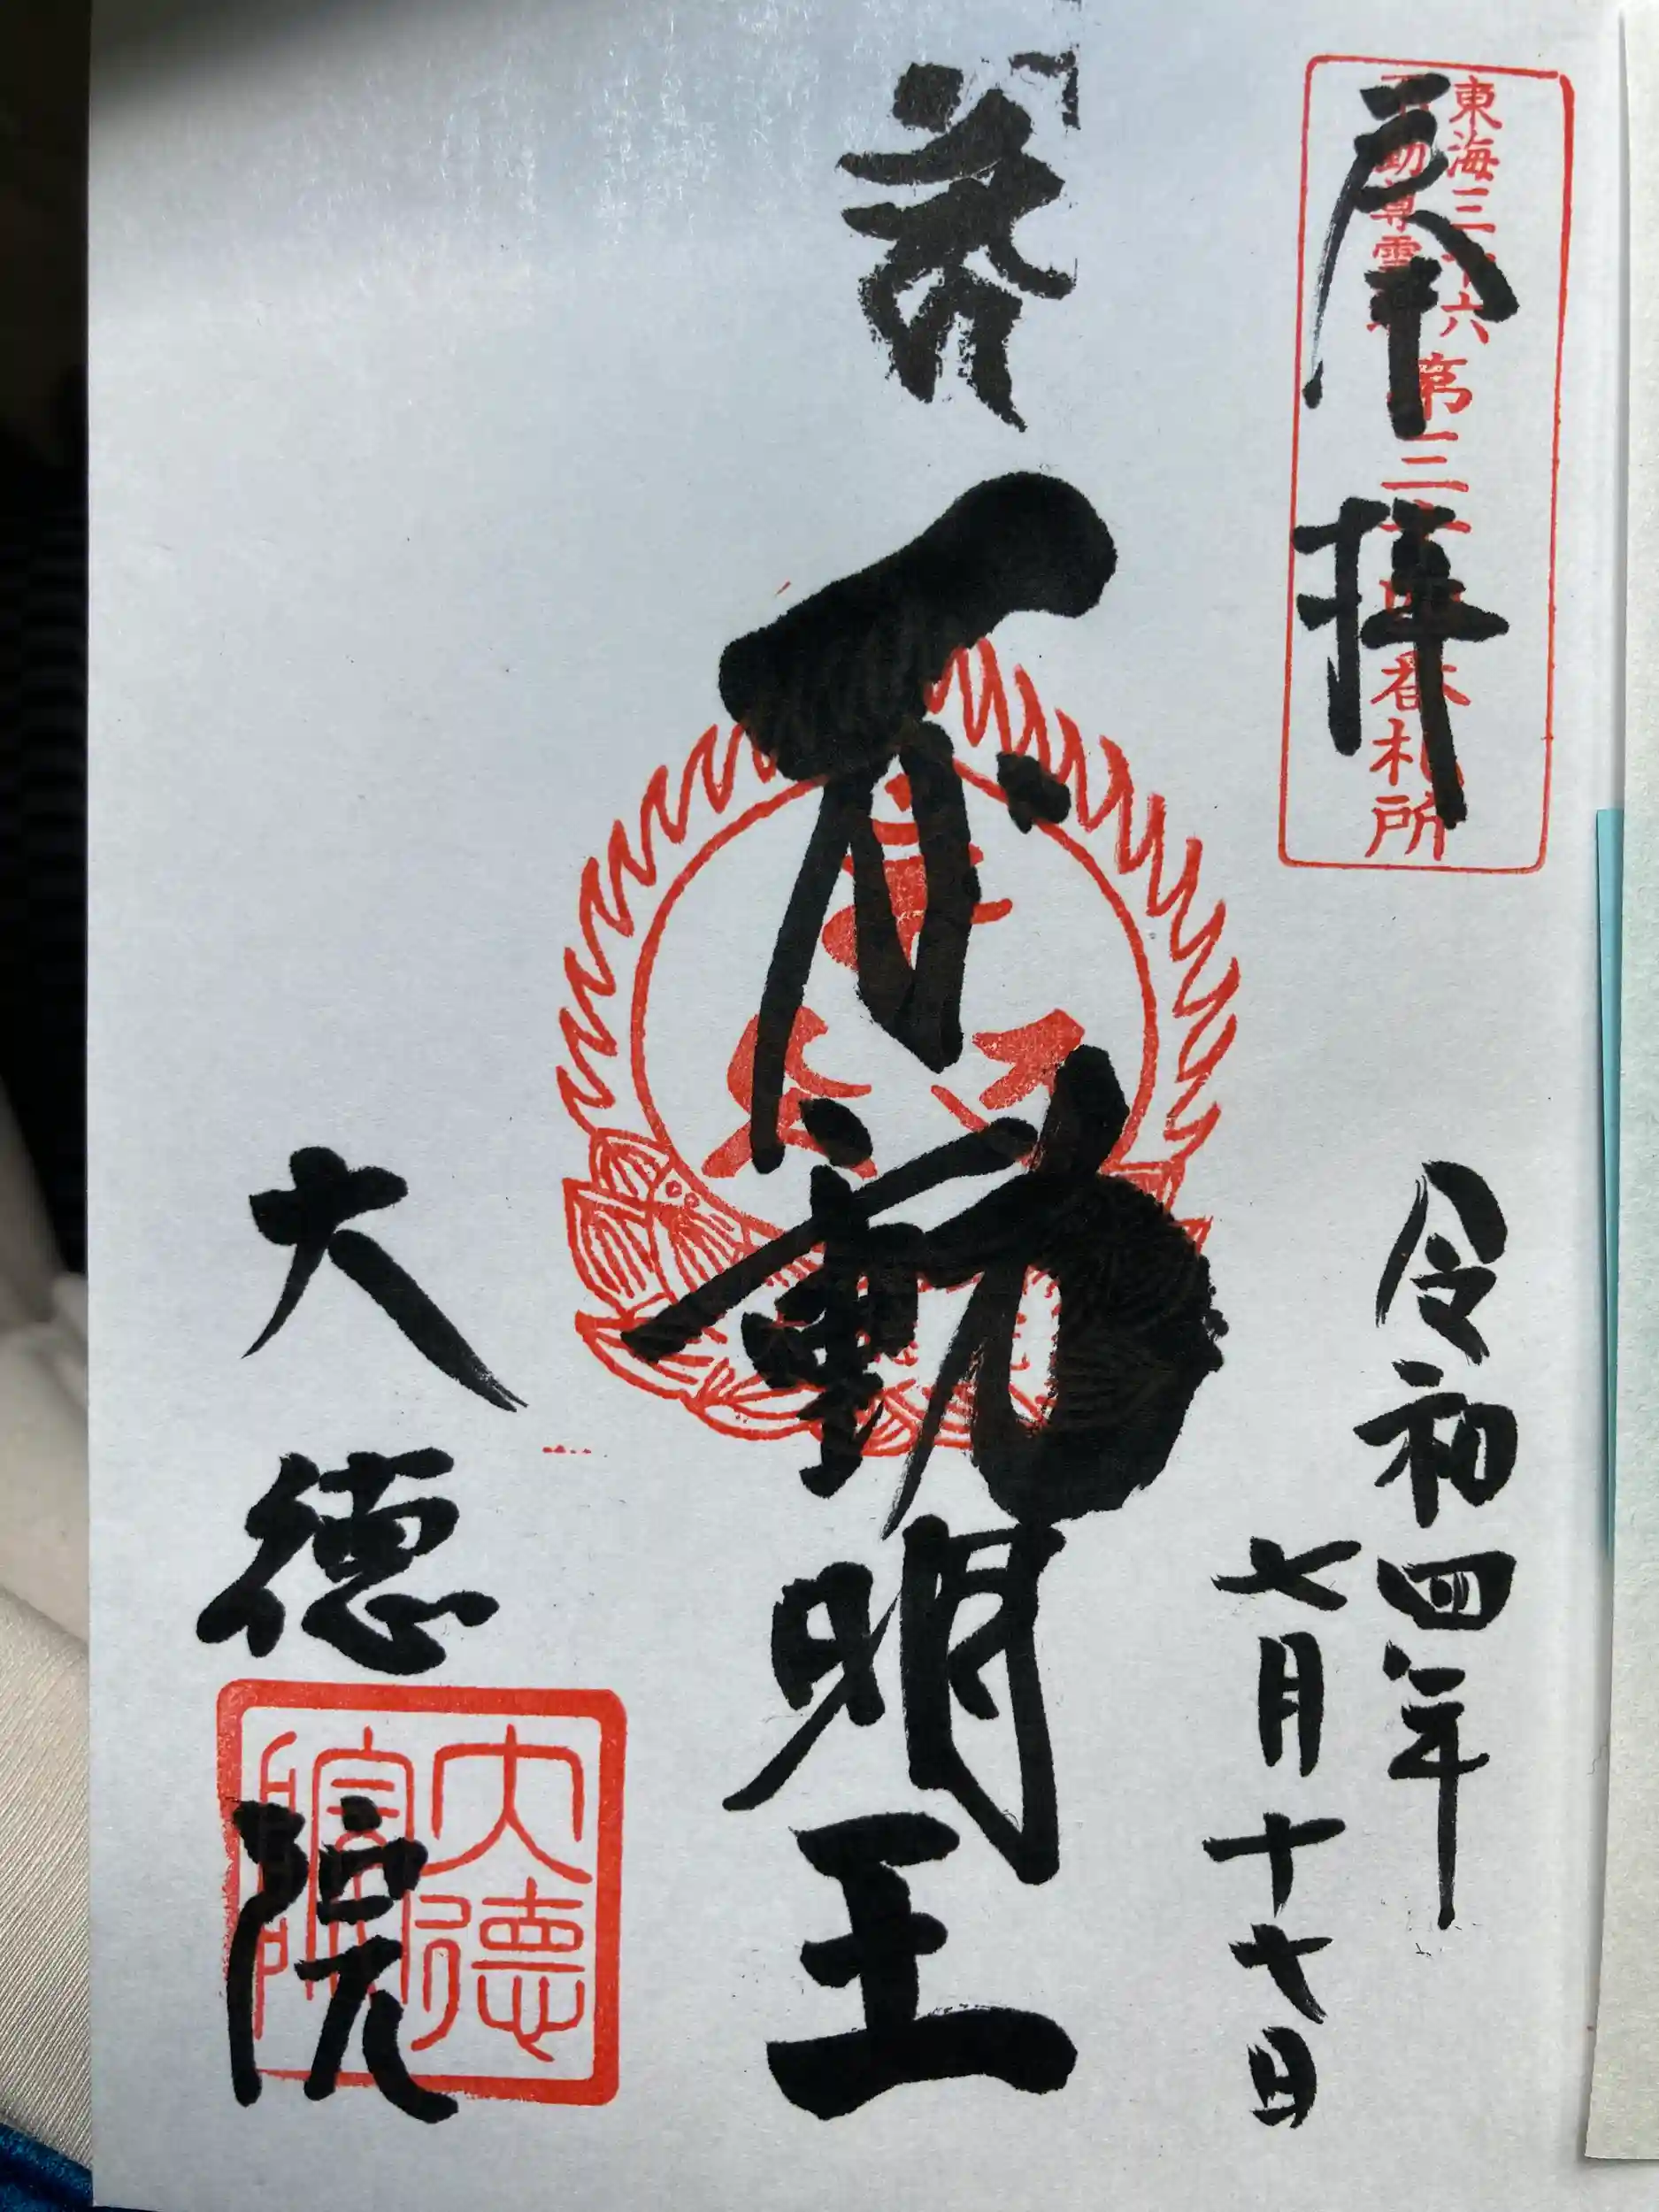 奉拝
東海三十六
不動尊霊場
第三十四番札所
令和四年
七月十七日
不動明王
大徳院
大德院